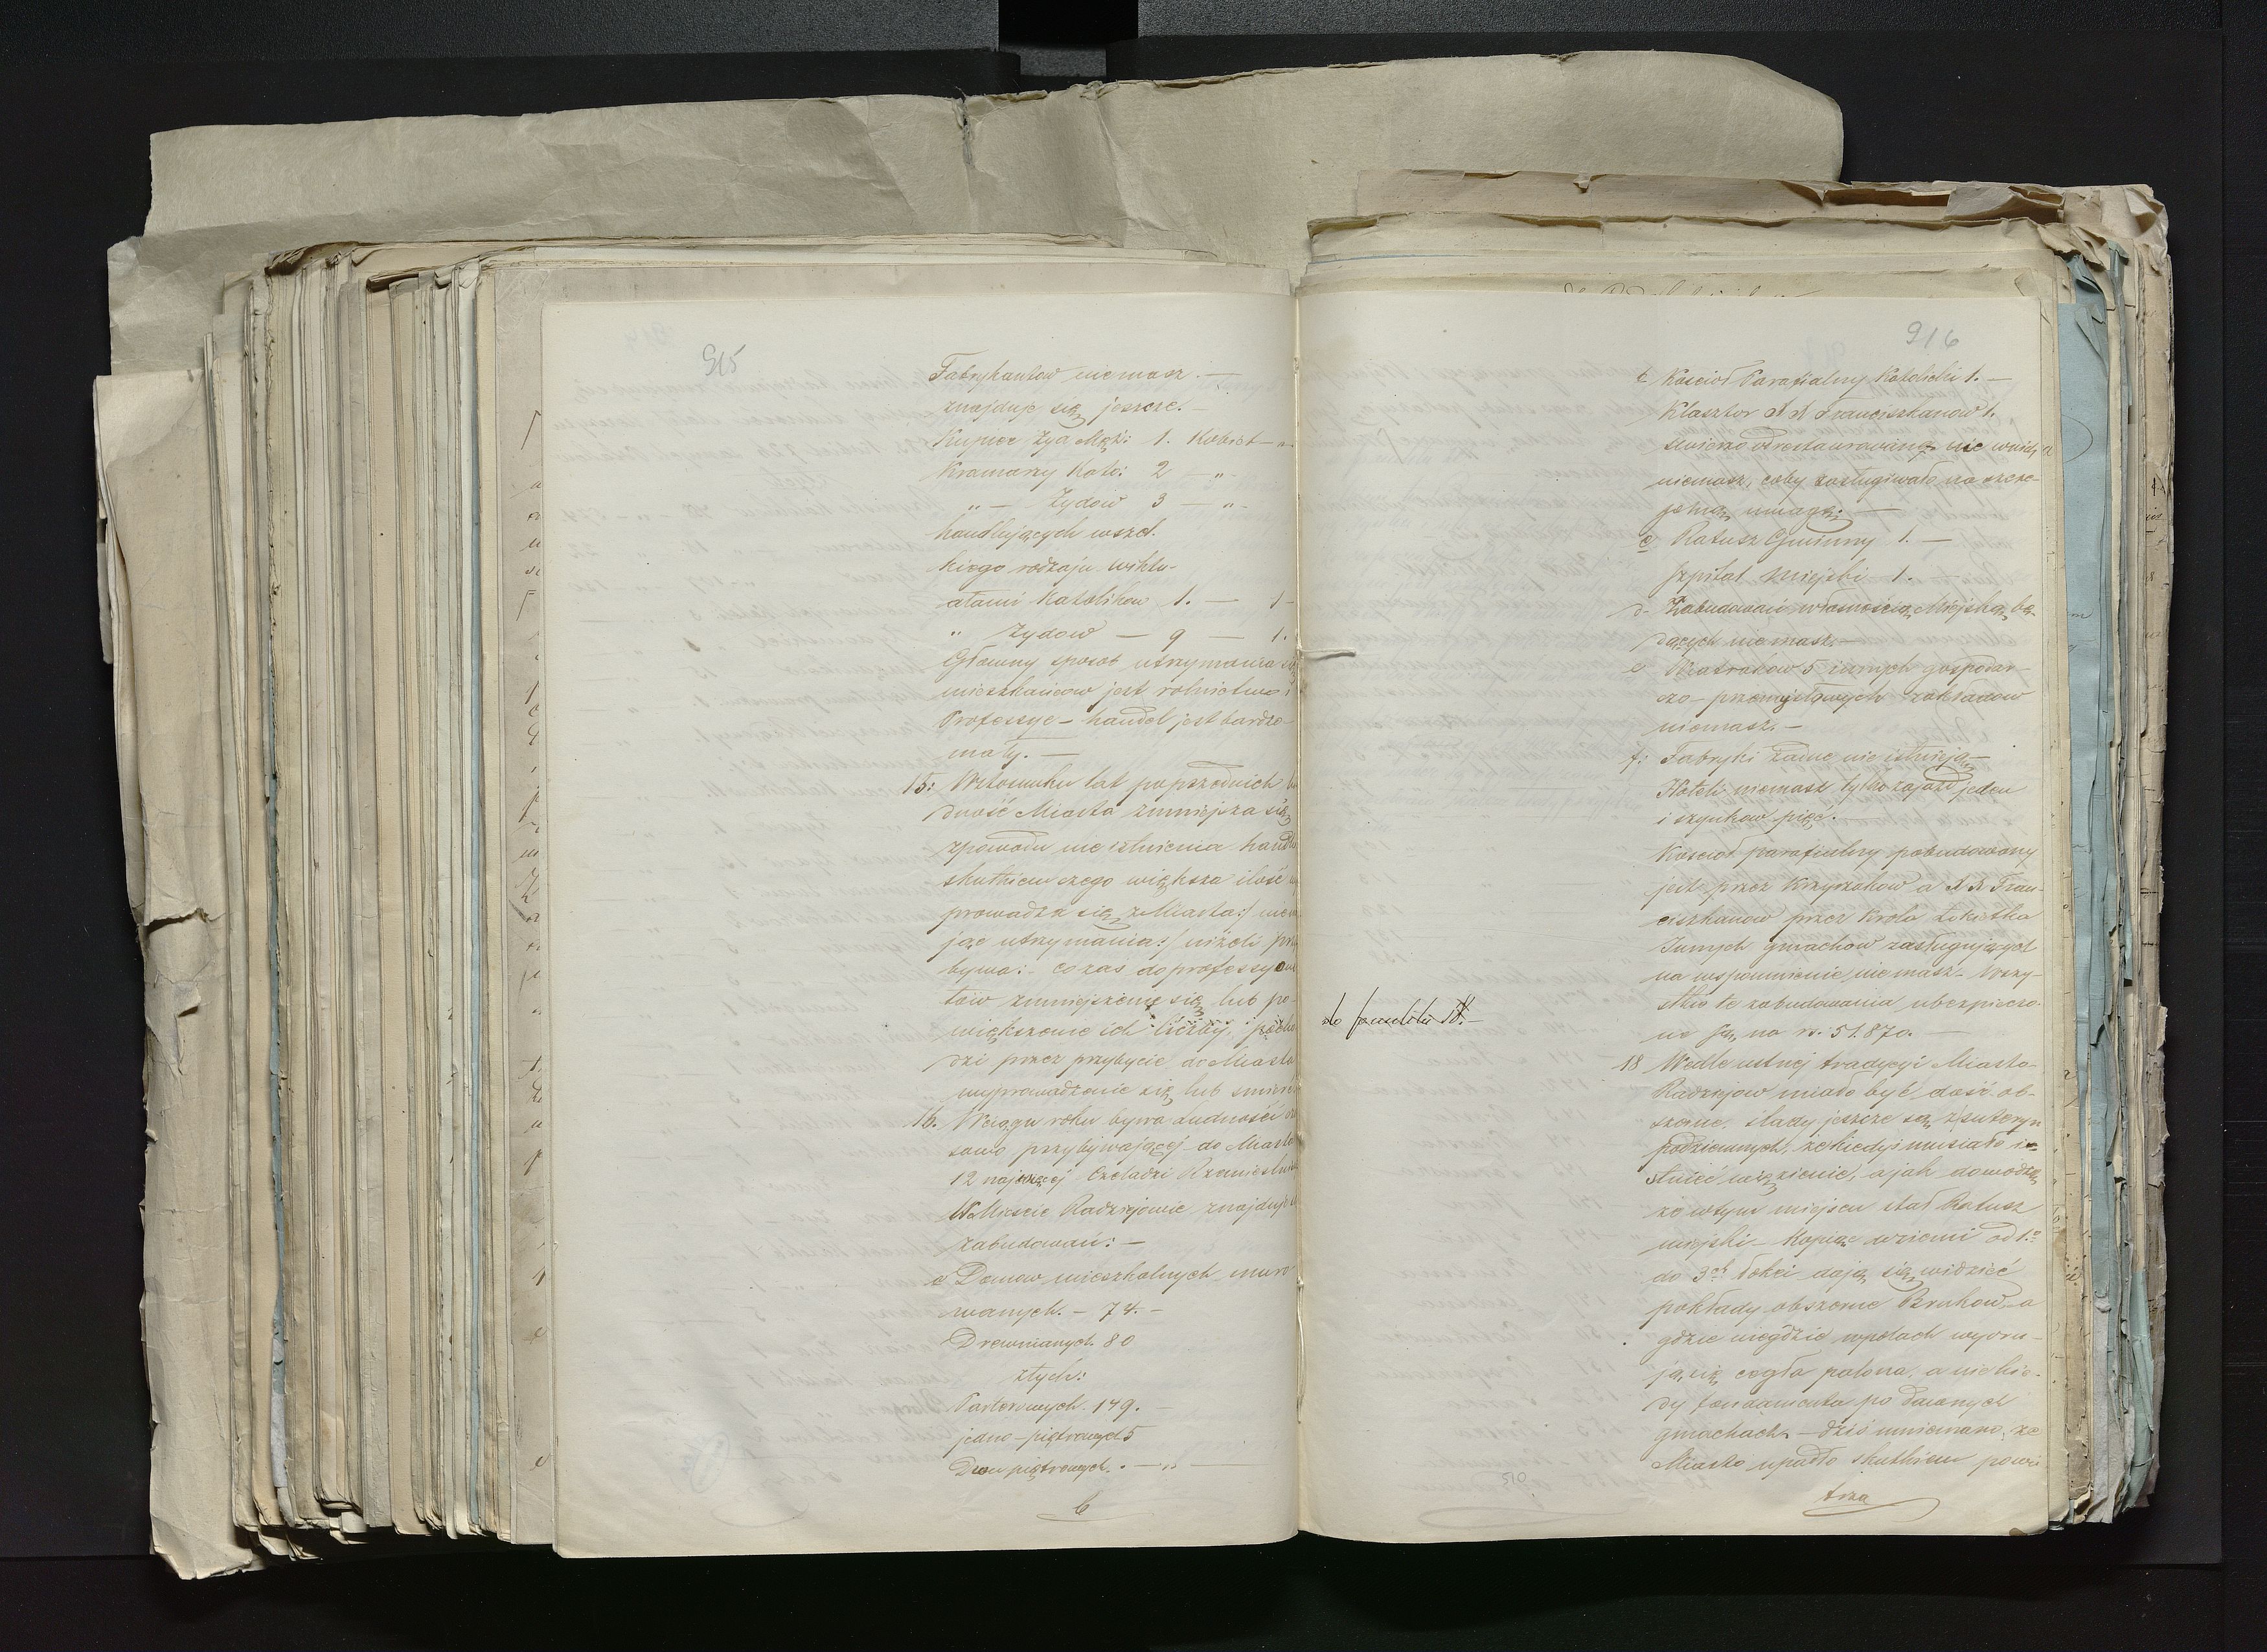 915
Fabrykantów niemasz. —
znajduje się jeszcze. —
Kupiec Żyd Męż: 1. Kobiet — „ -
Kramarzy Kato: 2 — „ -
„ — Żydów 3 — „ -
handlujących wszel-
kiego rodzaju wiktu-
ałami Katolików 1. — 1 -
„ Żydów — 9 — 1.
Główny sposób utrzymania się
mieszkańców jest rolnictwo i
Professye — handel jest bardzo
mały. —
15: W stosunku lat poprzednich lu
dność Miasta zmniejsza się
zpowodu nie istnienia handlu
skutkiem czego większa ilość wy
prowadza się z Miasta :/ niema
jąc utrzymania :/ niżeli przy
bywa: - co zaś do professyonis
tów zmniejszenie się lub po-
większenie ich liczby, pocho
dzi przez przybycie do Miasta
wyprowadzenie się lub śmierć
16. W ciągu roku bywa ludności cza
sowo przybywającej do Miasta
12 najwięcej Czeladzi Rzemieślni
W Mieście Radziejowie znajduje się
zabudowań: —
a Domów mieszkalnych muro
wanych. — 74. —
Drewnianych. 80
z tych:
Parterowych. 149. —
jedno-piętrowych 5
Dwu piętrowych. . — „ —
b
916
b Kościoł Parafialny Katolicki 1. —
Klasztor XX Franciszkanów 1.
świeżo odrestaurowany — nie widzi a
niemasz, coby zasługiwało na szcze-
gólną uwagę: —
c Ratusz Gminny 1. —
Szpital Miejski 1. —
d- Zabudowań własnością Miejską bę-
dących niemasz. —
e Wiatraków 5 innych gospodar-
czo-przemysłowych zakładów
niemasz. —
f: Fabryki żadne nie istnieją —
Hoteli niemasz tylko zajazd jeden
i szynków pięć. —
Kościoł parafialny pobudowany
jest przez Krzyżaków a XX Fran-
ciszkanów przez Króla Łokietka
Innych gmachów zasługujących
na wspomnienie niemasz. Wszy-
stkie te zabudowania ubezpieczo-
ne są na rs: 51.870. —
18 Wedle ustnej tradycyi Miasto
Radziejow miało być dość ob-
szerne, ślady jeszcze są z suteryn
podziemnych, że kiedyś musiało i-
stnieć więzienie, a jak dowodzą
że w tym miejscu stał Ratusz
miejski — Kopiąc w ziemi od 1.°
do 3ch łokci dają się widzieć
pokłady obszerne Bruków, a
gdzie niegdzie w polach wyoru-
ją się cegła palona, a niekie-
dy fondamenta po dawnych
gmachach — dziś mniemano, że
Miasto upadło skutkiem powie
trza
510